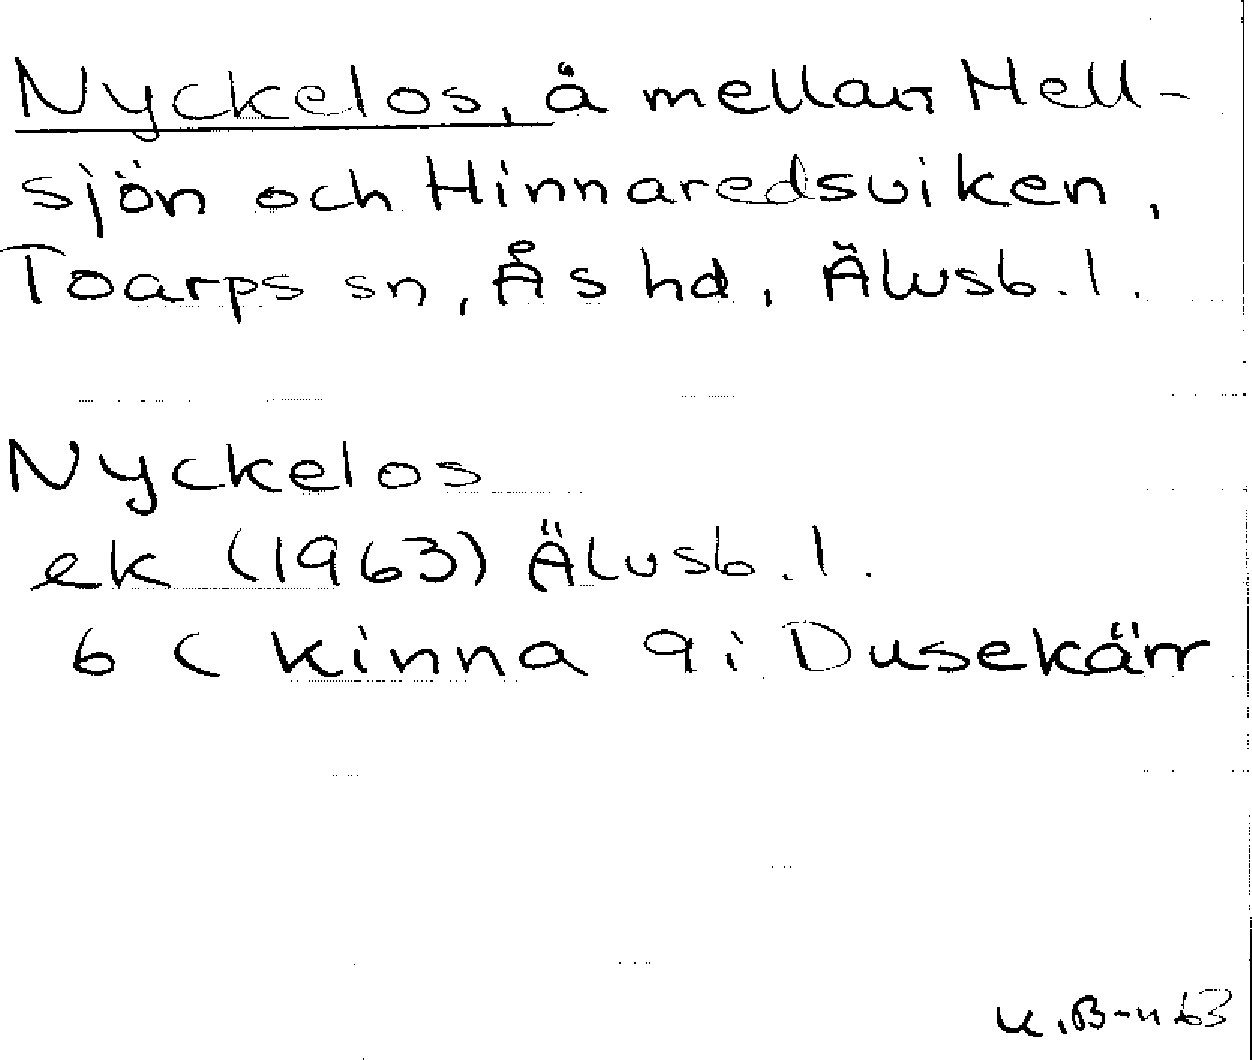 Nyckelos, å mellan Mell-
sjön och Hinnaredsviken,
Toarps sn, Ås hd, Älvsb. l.
Nyckelos
ek (1963) Älvsb. l.
6 C Kinna 9 i Dusekärr
K.B-n 63